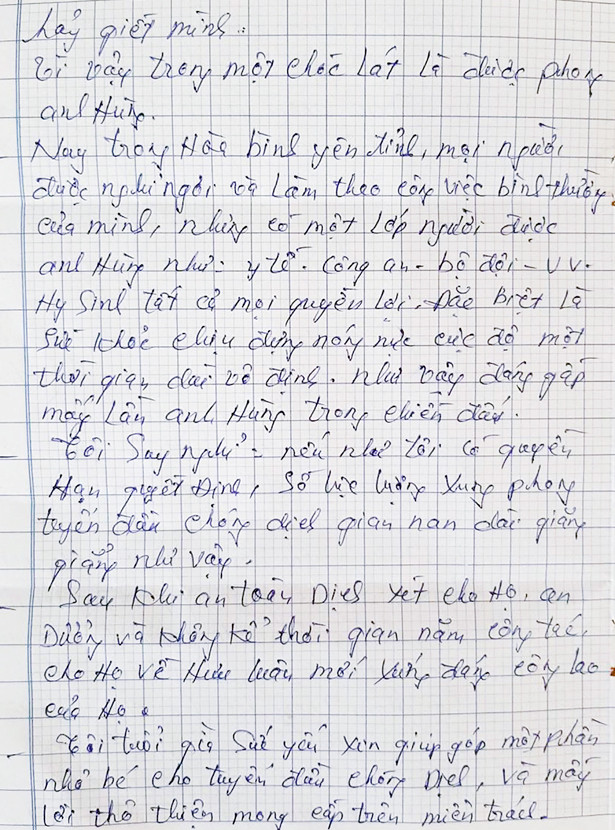 hay giết mình..
Vì vậy trong một chốc lát là được phong
anh Hùng.
Nay trong Hòa bình yên tỉnh, mọi người
được nghỉ ngơi và Làm theo công việc bình thường
của mình, nhưng có một Lớp người được
anh Hùng như: y tế - Công an - bộ đội - vv.
Hy Sinh tất cả mọi quyền Lợi. Đặc biệt là
Sức khoẻ chịu đựng nóng nực cực độ một
thời gian dài vô định. Như vậy đáng gấp
mấy Lần anh Hùng trong chiến đấu.
Tôi Say nghỉ: nếu như tôi có quyền
Hạn quyết Định, Số Lực Lượng Xung phong
tuyến đầu chống dịch gian nan dài giẵng
giẵng như vậy.
Say khi an toàn Dịch xét cho Họ. an
Dưỡng và không kể thời gian năm công tác,
cho Họ về Hưu luôn mới xứng đáng công lao
của Họ.
Tôi tuổi già Sức yếu xin giúp góp một phần
nhỏ bé cho tuyến đầu chống Dịch, và mấy
Lời thô thiện mong cấp trên miễn trách.